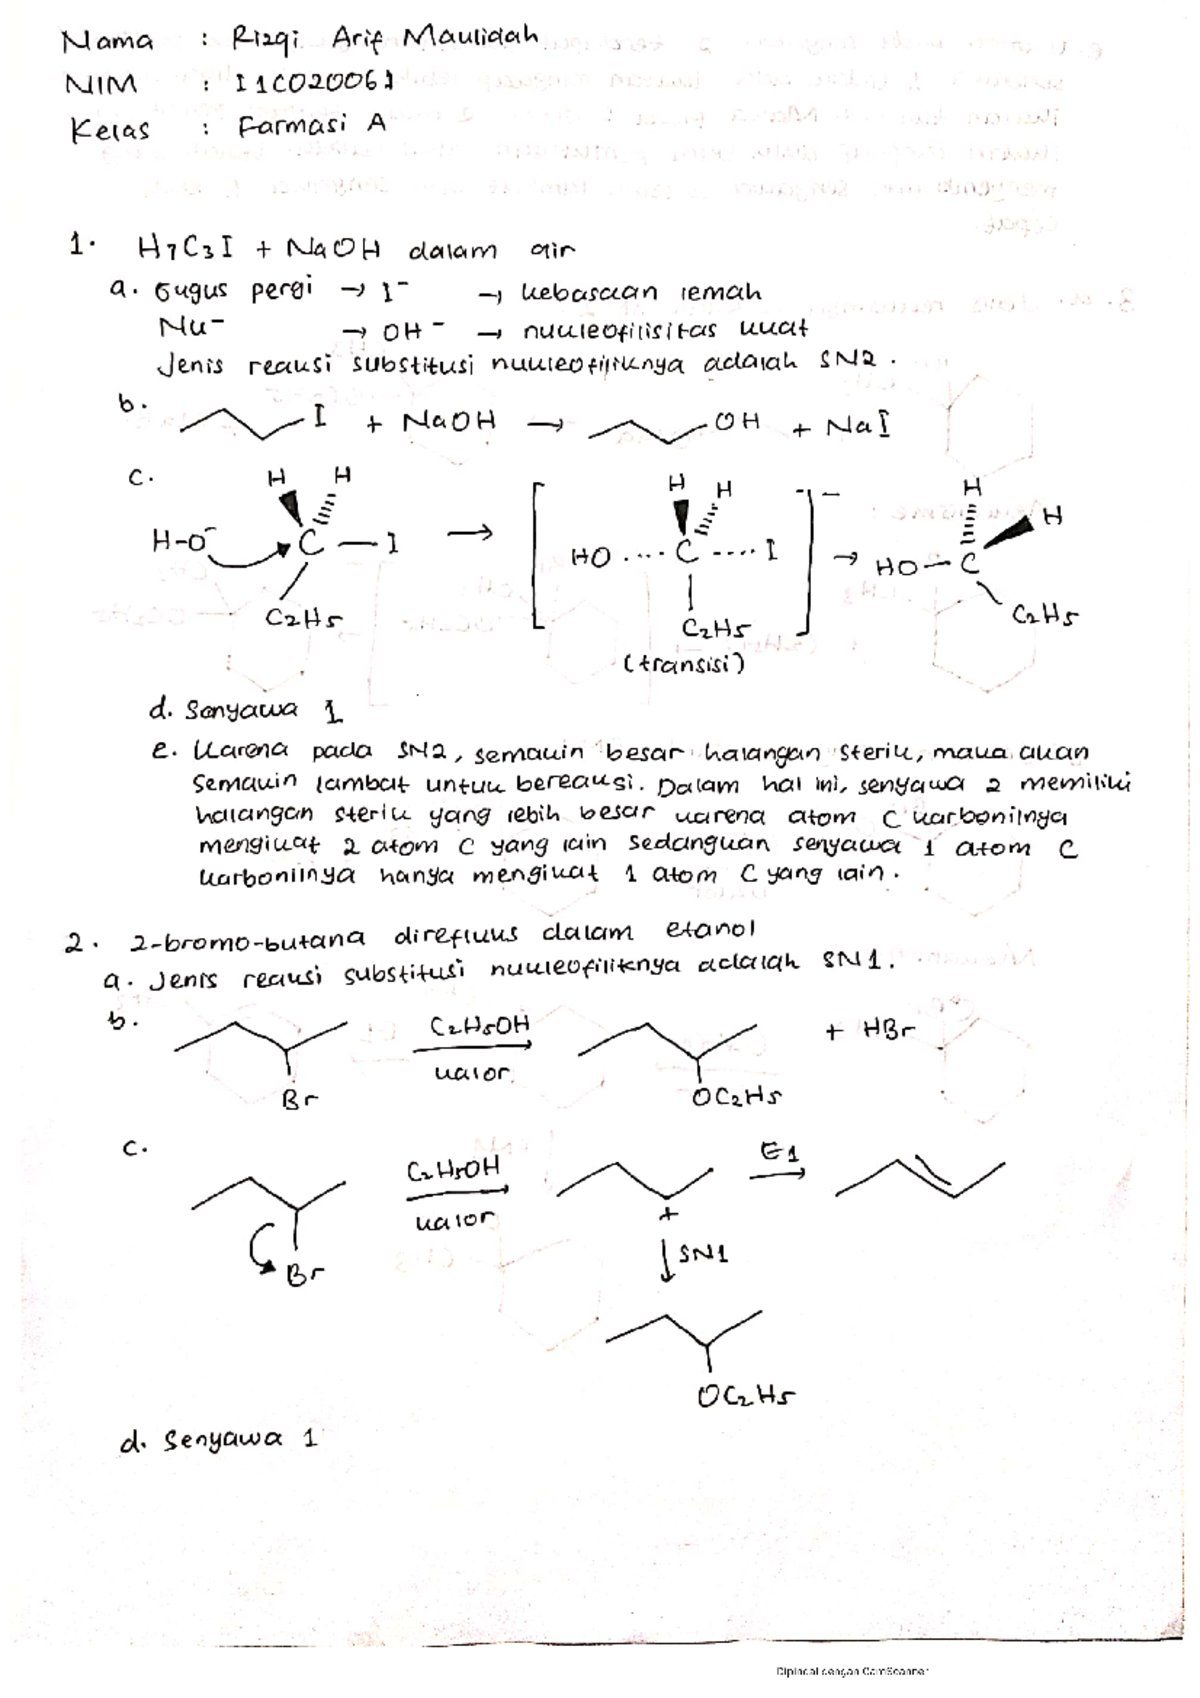 Nama : Rizqi Arif Maulidah
NIM : I1C020061
Kelas : Farmasi A
1. H7C3I + NaOH dalam air
a. Gugus pergi → I⁻ → kebasaan lemah
Nu⁻ → OH⁻ → nukleofilisitas kuat
Jenis reaksi substitusi nukleofiliknya adalah SN2.
b. I + NaOH → OH + NaI
c. H H H H H
H-O⁻ C — I → HO .... C .... I → HO — C H
C2H5 C2H5 C2H5
(transisi)
d. Senyawa 1
e. Karena pada SN2, semakin besar halangan sterik, maka akan
semakin lambat untuk bereaksi. Dalam hal ini, senyawa 2 memiliki
halangan sterik yang lebih besar karena atom C karbonilnya
mengikat 2 atom C yang lain sedangkan senyawa 1 atom C
karbonilnya hanya mengikat 1 atom C yang lain.
2. 2-bromo-butana direfluks dalam etanol
a. Jenis reaksi substitusi nukleofiliknya adalah SN1.
b. C2H5OH + HBr
kalor
Br OC2H5
c. C2H5OH E1
kalor +
Br SN1
OC2H5
d. Senyawa 1
Dipindai dengan CamScanner